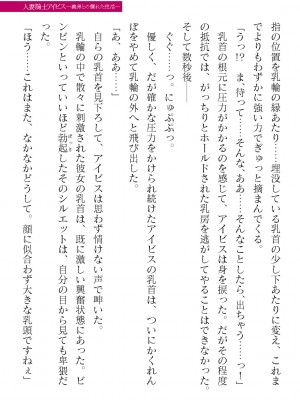 人妻騎士アイビス
指の位置を乳輪の縁あたり……埋没している乳首の少し下あたりに変え、これま
でよりもわずかに強い力でぎゅっと摘まんでくる。
「うっ？　ま、待って……そんな、ああ……そんなことしたら、出ちゃう……っ」
乳首の根元に圧力がかかるのを感じて、アイビスは身を振った。だがその程度
の抵抗では、がっちりとホールドされた乳房を逃がしてやることはできなかった。
そして数秒後――
ぐぐ……っ。にゅぷぷっ。
優しく、だが確かな圧力をかけられ続けたアイビスの乳首は、ついにかくれん
ぼをやめて乳輪の外へと飛び出した。
「あ、ああ……」
自らの乳首を見下ろして、アイビスは思わず情けない声で呻いた。
乳輪の中で散々に刺激された彼女の乳首は、既に激しい興奮状態にあった。ビ
ンビンといっていいほど勃起した左のシルエットは、自分の目から見ても卑猥だ
った。
「ほう……これはまた、なかなかどうして。顔に似合わず大きな乳頭ですねぇ」